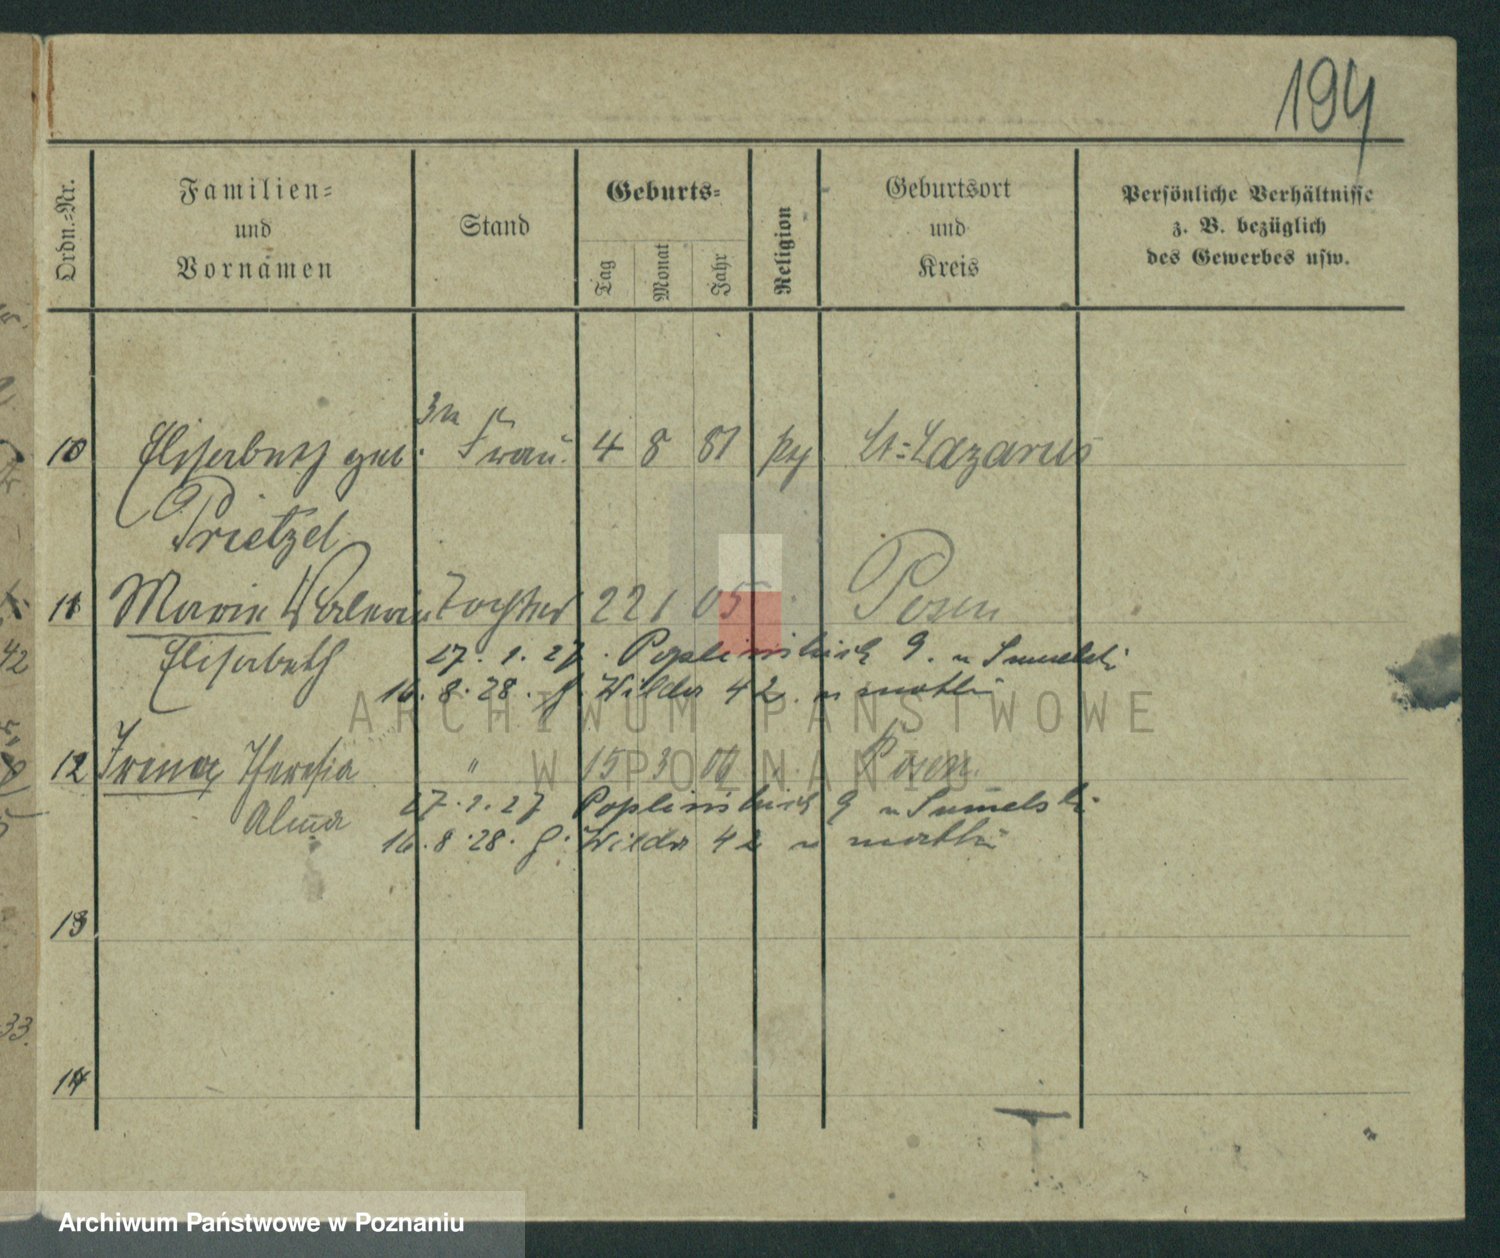 194
Ordn.-Nr.
Familien-
und
Vornamen
Stand
Geburts-
Tag Monat Jahr
Religion
Geburtsort
und
Kreis
Persönliche Verhältnisse
z. B. bezüglich
des Gewerbes usw.
10 Elisabeth geb. Frau 4 8 81 St: Lazarus
Prietzel
11 Marie Valerie Tochter 22 1 05 Posen
Elisabeth 27. 1. 27. 9.
16. 8. 28. Wilda 42.
12 Irena Theresia " 15 3 Posen
Alma 27. 1. 27 9
16. 8. 28. Wilda 42
13
14
33.
42
ARCHIWUM PAŃSTWOWE
W POZNANIU
Archiwum Państwowe w Poznaniu